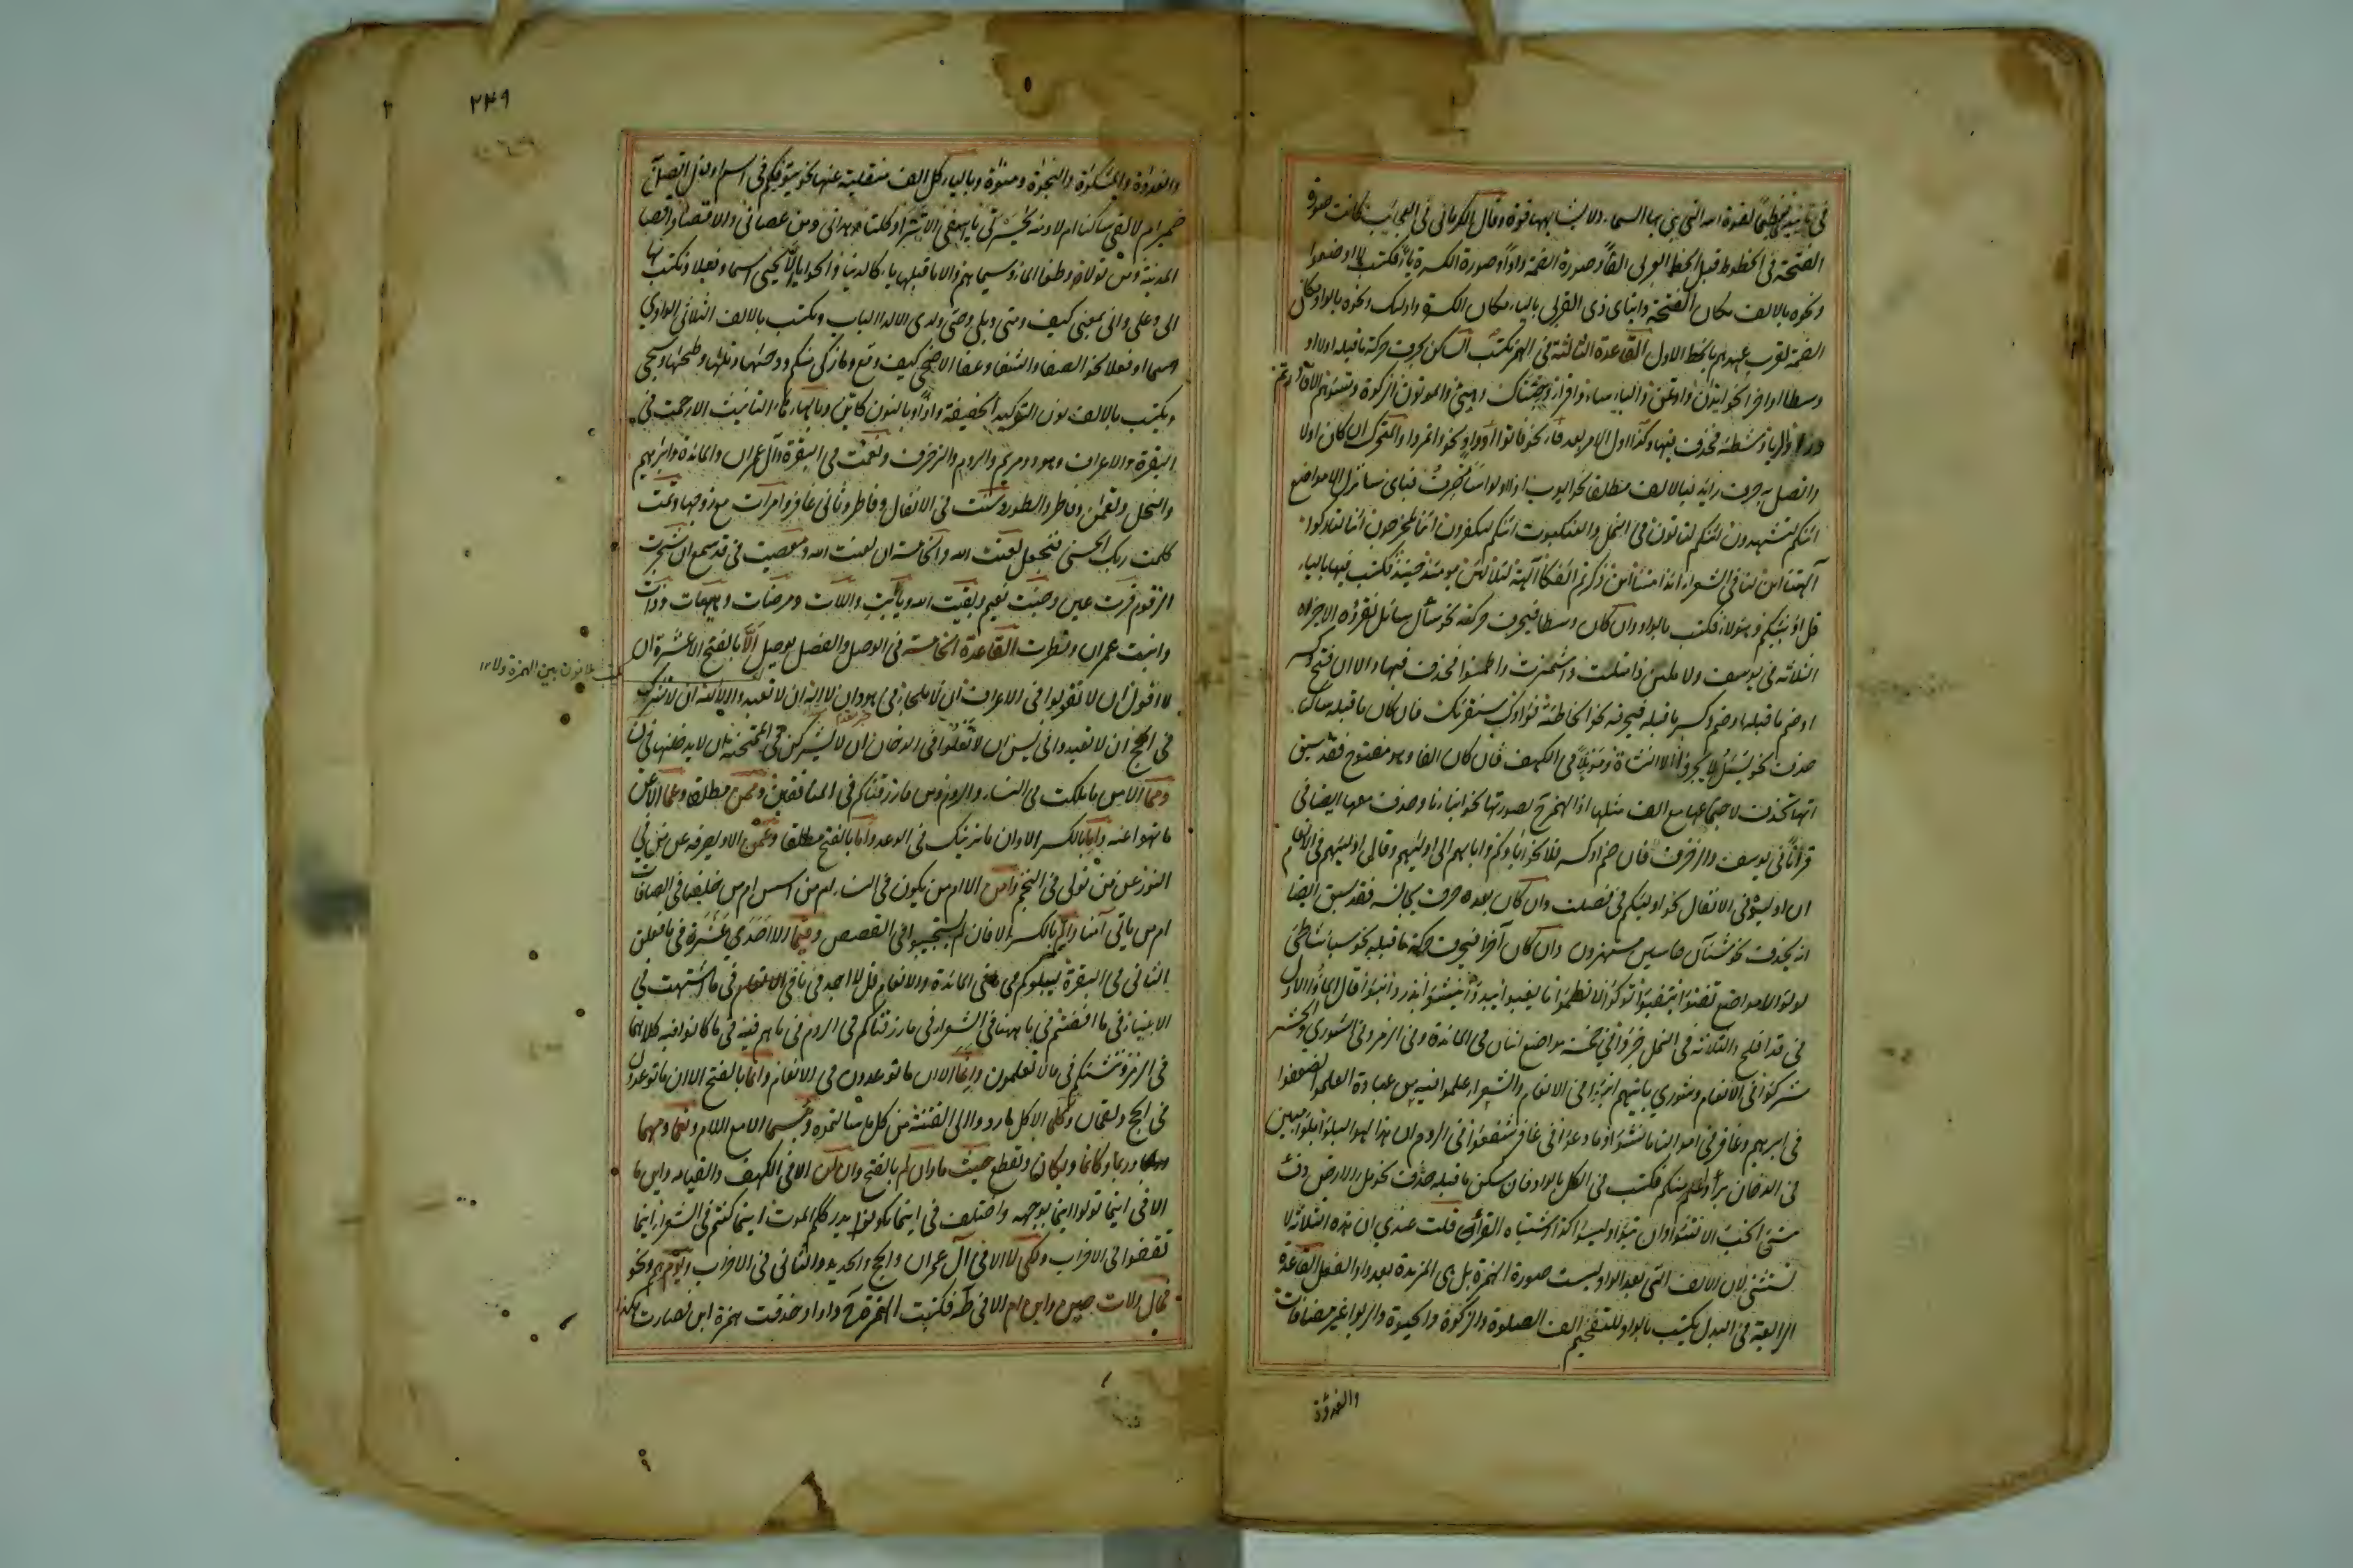 في تأنيثه تفخيما لقوة الله التي بنى بها السماء ولا يشابهها قوة وقال الكرماني في العجائب كانت صورة
الفتحة في الخطوط قبل الخط العربي الفا وصورة الضمة واوا وصورة الكسرة ياء فكتب لا اوضعوا
ونحوه بالالف مكان الفتحة وايتاى ذى القربى بالياء مكان الكسرة واولئك ونحوه بالواو مكان
الضمة لقرب عهدهم بالخط الاول القاعدة الثالثة في الهمز يكتب الساكن بحرف حركة ما قبله اولا او
وسطا او اخرا نحو ايذن واوتمن والباساء واقرا وجئناك وهيئ والموتون الزكوة وتسوهم الا
ورءيا شطئه فحذف فيها وكذا اول الامر بعد فاء نحو فاتوا او واو نحو واتمروا والمتحرك ان كان اولا
واتصل به حرف زايد فبالالف مطلقا نحو ايوب اذا اولوا ساصرف فباى سانزل الا مواضع
ائنكم لتشهدون ائنكم لتاتون في النمل والعنكبوت ائنكم لتكفرون ائنا لمخرجون ائنا لتاركوا
آلهتنا ائن لنا في الشعراء ائذا متنا ائن ذكرتم ائفكا آلهة لئلا لئن يومئذ حينئذ فكتب فيها بالياء
قل اؤنبئكم وهؤلاء فكتب بالواو وان كان وسطا فبحرف حركته نحو سأل سئل نقرؤه الا جزاؤه
الثلاثة في يوسف ولاملئن وامتلئت واشمئزت واطمئنوا فحذف فيها والا ان فتح وكسر
او ضم ما قبله او ضم وكسر ما قبله فبحرفه نحو الخاطئة فؤادك سنقرئك فان كان ما قبله ساكنا
حذف نحو يسئل لا تجئروا الا النشاة وموئلا في الكهف فان كان الفا وهو مفتوح فقد سبق
انها تحذف لاجتماعها مع الف مثلها اذ الهمزة ح بصورتها نحو ابناءنا وحذف معها ايضا في
قرءنا في يوسف والزخرف فان ضم او كسر فلا نحو اباؤكم واباىهم الا اولياهم وقال اولياهم في الانعام
ان اولياؤه في الانفال نحو اولياؤكم في فصلت وان كان بعده حرف يجانسه فقد سبق ايضا
انه يحذف نحو شنآن خاسئين مستهزؤن وان كان آخرا فبحرف حركة ما قبله نحو سبا شاطئ
لؤلؤ الا مواضع تفتؤا يتفيؤا اتوكؤا لا تظمؤا ما يعبؤا يبدؤا ينشؤا يذرؤا نبؤا قال الملؤا الاول
في قد افلح والثلاثة في النمل جزؤا في خمسة مواضع اثنان في المائدة وفي الزمر وفي الشورى والحشر
شركؤا في الانعام وشورى ياتيهم انبؤا في الانعام والشعراء علمؤا فيه من عباده العلمؤا الضعفؤا
في ابرهيم وغافر في اموالنا ما نشؤا وما دعؤا في غافر شفعؤا في الروم ان هذا لهو البلؤا بلؤا مبين
في الدخان برءؤا منكم فكتب في الكل بالواو فان سكن ما قبله حذف نحو ملء الارض دفء
شئ الخبء الا لتنوا وان تبوءا وليسوا كذا استثناه القراء قلت عندي ان هذه الثلاثة لا
تستثنى لان الالف التي بعد الواو ليست صورة الهمزة بل هي المزيدة بعد واو الفعل القاعدة
الرابعة في البدل يكتب بالواو للتفخيم الف الصلوة والزكوة والحيوة والربوا غير مضافات
والغدوة
٢٤٩
والغدوة والمشكوة والنجوة ومنوة وبالياء كل الف منقلبة عنها نحو يتوفيكم في اسم او فعل اتصل به
ضمير ام لا لقي ساكنا ام لا ومنه يحسرتى ياسفى الا تترا وكلتا وهداني ومن عصاني والاقصا واقصا
المدينة ومن تولاه وطغا الماء وسيماهم والا ما قبلها ياء كالدنيا والحوايا الا يحيى اسما وفعلا ويكتب بها
الى وعلى وانى بمعنى كيف ومتى وبلى وحتى ولدى الا لدا الباب ويكتب بالالف الثلاثي الواوي
اسما او فعلا نحو الصفا والشفا وعفا الا ضحى كيف وقع وما زكى منكم ودحيها وتليها وطحيها وسجى
ويكتب بالالف نون التوكيد الخفيفة واذا وبالنون كاين وبالهاء هاء التانيث الا رحمت في
البقرة والاعراف وهود ومريم والروم والزخرف ونعمت في البقرة وآل عمران والمائدة وابراهيم
والنحل ولقمن وفاطر والطور وسنت في الانفال وفاطر وثاني غافر وامرات مع زوجها وتمت
كلمت ربك الحسنى فنجعل لعنت الله والخامسة ان لعنت الله ومعصيت في قد سمع ان شجرت
الزقوم قرت عين وجنت نعيم وبقيت الله ويا ابت واللات ومرضات وهيهات وذات
وابنت عمران وفطرت القاعدة الخامسة في الوصل والفصل يوصل الا بالفتح الا عشرة ان
لا اقول ان لا تقولوا في الاعراف ان لا ملجأ في هود ان لا اله ان لا تعبدوا الا الله ان لا تشرك
في الحج ان لا تعبدوا في يس ان لا تعلوا في الدخان ان لا يشركن في الممتحنة ان لا يدخلنها في ن
ومما الا من ما ملكت في النساء والروم ومن ما رزقناكم في المنافقين وممن مطلقا وعما الا عن
ما نهوا عنه واما بالكسر الا وان ما نرينك في الرعد واما بالفتح مطلقا وعمن الا ويصرفه عن من في
النور عن من تولى في النجم وامن الا ام من يكون في النساء ام من اسس ام من خلقنا في الصافات
ام من ياتي آمنا والم بالكسر الا فان لم يستجيبوا في القصص وفيما الا احد عشرة في ما فعلن
الثاني في البقرة ليبلوكم في ما في المائدة والانعام قل لا اجد في ما في الانعام في ما اشتهت في
الانبياء في ما افضتم في ما ههنا في الشعراء في ما رزقناكم في الروم في ما هم فيه في ما كانوا فيه كلاهما
في الزمر وننشئكم في ما لا تعلمون وانما الا ان ما توعدون في الانعام وانما بالفتح الا ان ما توعدون
في الحج ولقمان وكلما الا كل ما ردوا الى الفتنة من كل ما سالتموه وبئسما الا مع اللام ونعما ومهما
وربما وكانما ويكان وتقطع حيث ما وان لم بالفتح وان لن الا في الكهف والقيامة واين ما
الا في اينما تولوا اينما يوجهه واختلف في اينما تكونوا يدرككم الموت اينما كنتم في الشعراء اينما
ثقفوا في الاحزاب ولكي لا الا في آل عمران والحج والحديد والثاني في الاحزاب ويوم هم ونحو
فمال ولات حين وابن ام الا في طه فكتبت الهمزة ح واوا وحذفت همزة ابن فصارت هكذا
يكتب بلا نون بين الهمزة ولا ١٢